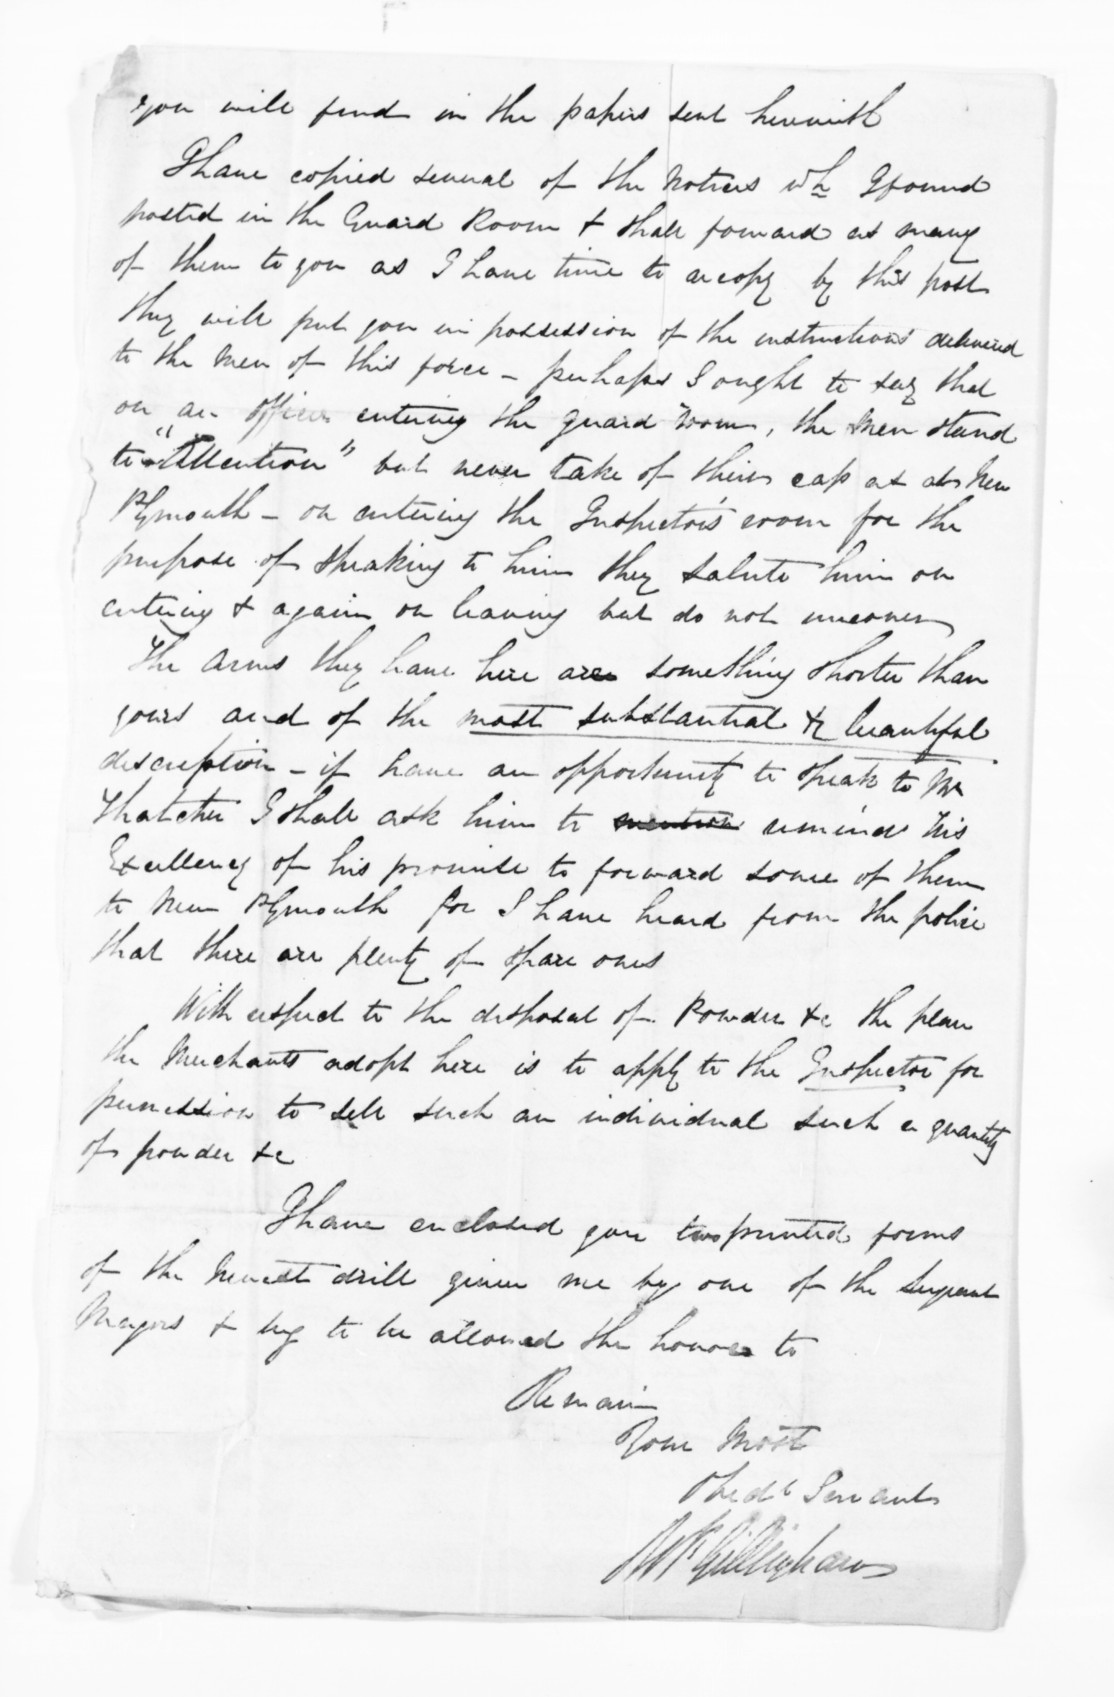 you will find in the papers sent herewith
I have copied several of the Notices wh I found
posted in the Guard Room & shall forward as many
of them to you as I have time to recopy by this post
they will put you in possession of the instructions delivered
to the Men of this force - perhaps I ought to say that
on an officer entering the guard room, the Men stand
to "Attention" but never take of their cap as at New
Plymouth - on entering the Inspector's room for the
purpose of speaking to him they salute him on
entering & again on leaving but do not uncover
The Arms they have here are something shorter than
yours and of the most substantial & beautiful
description - if have an opportunity to speak to Mr
Thatcher I shall ask him to mention remind His
Excellency of his promise to forward some of them
to New Plymouth for I have heard from the police
that there are plenty of spare ones
With respect to the disposal of Powder &c the plan
the Merchants adopt here is to apply to the Inspector for
permission to sell such an individual such a quantity
of powder &c
I have enclosed you two printed forms
of the Newest drill given me by one of the Sergeant
Majors & beg to be allowed the honor to
Remain
Your Most
Obedt Servant
Gillingham